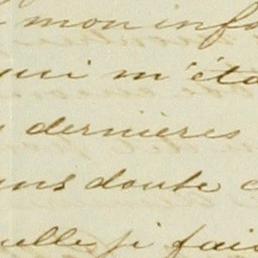 mon inf
m'éta
dernières
ans doute c
elle je fais